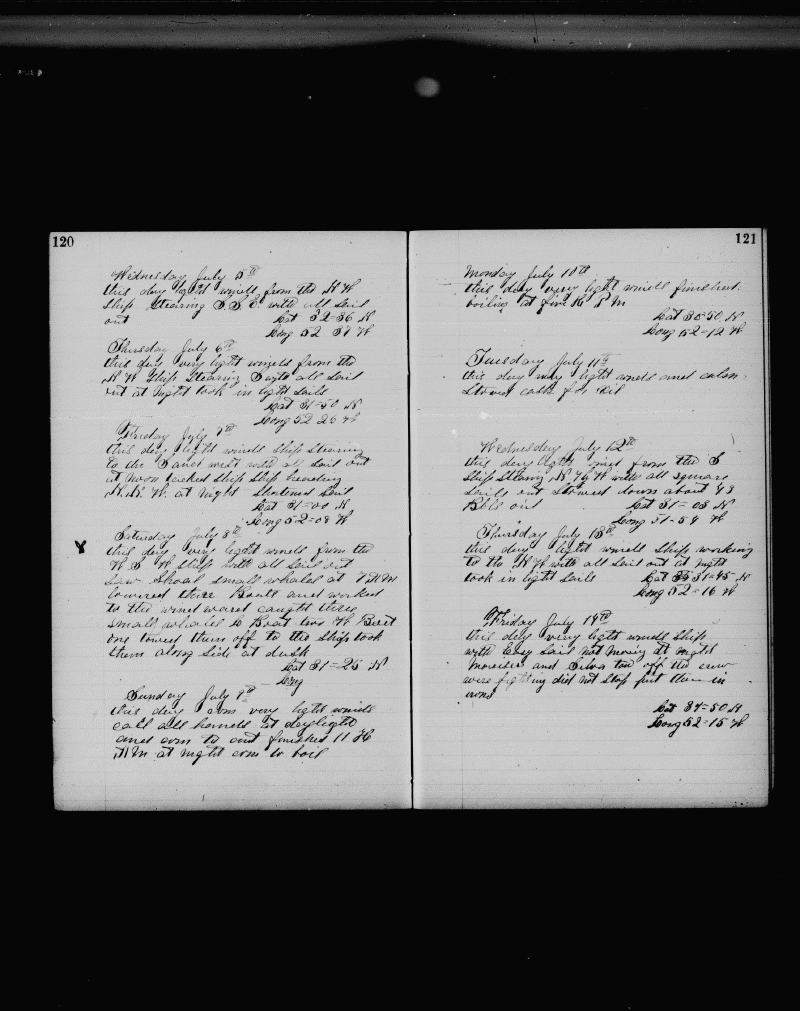 120
Wednesday July 5th
this day light winds from the N W
Ship Stearing S.S.E. with all Sail
out Lat 32=36 N
Long 52 37 W
Thursday July 6th
this day very light winds from the
N W Ship Stearing S with all Sail
out at night took in light Sails
Lat 31=50 N
Long 52 26 W
Friday July 7th
this day light winds Ship Stearing
to the S and west with all Sail out
at noon tacked Ship Ship heading
N.N.W. at night Shortned Sail
Lat 31=00 N
Long 52=09 W
Saturday July 8th
this day very light winds from the
W S W Ship with all Sail out
Saw Shoal small whales at P.M
lowered three Boats and worked
to the wind ward caught three
small whales Boat two W Boat
one towed them off to the Ship took
them along Side at dusk
Lat 31=25 N
Long
Sunday July 9th
this day com very light winds
call all hands at daylight
and com to cut finished 11
A M at night com to boil
121
Monday July 10th
this day very light winds finished
boiling at five P M
Lat 30=50 N
Long 52=12 W
Tuesday July 11th
this day very light winds and calm
Stowed casks for oil
Wednesday July 12th
this day light wind from the S
Ship Stearing N W with all square
Sails out Stowed down about 43
Bbls oil Lat 31=03 N
Long 51=59 W
Thursday July 13th
this day light winds Ship working
to the N W with all Sail out at night
took in light Sails Lat 31=45 N
Long 52=16 W
Friday July 14th
this day very light winds Ship
with Easy Sail not moving at night
and Silva two off the crew
were fighting did not Stop put them in
irons
Lat 34=50 N
Long 52=15 W